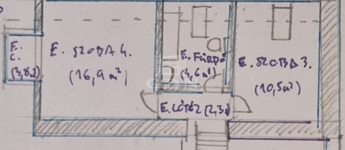 E. SZOBA 4.
(16,9 m²)
E. FÜRDŐ
(4,6 m²)
E. SZOBA 3.
(10,5 m²)
E.
C.
E. KÖZL. (2,3